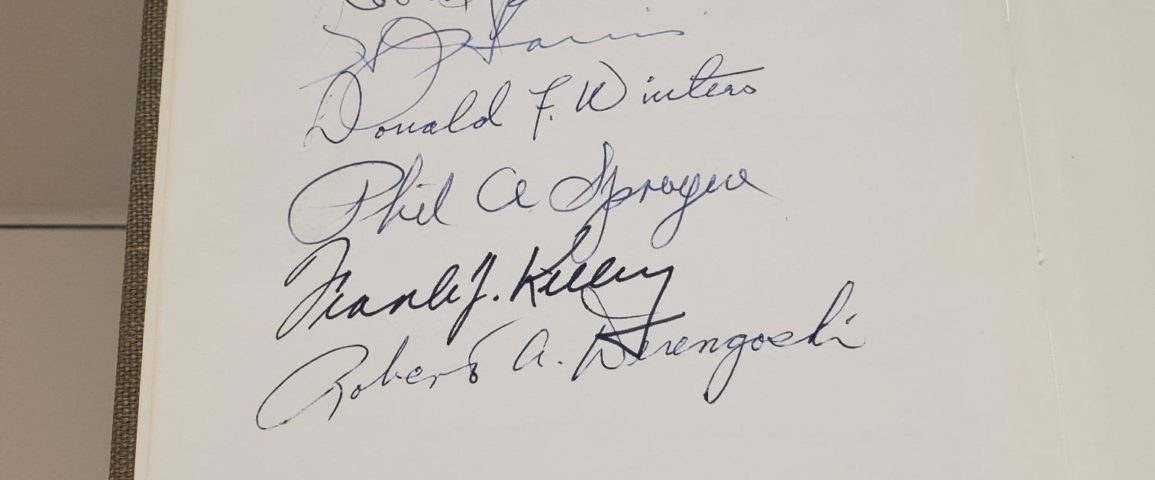 Harris
Donald F. Winters
Phil A Sprague
Frank J. Kelley
Robert A. Derengoski